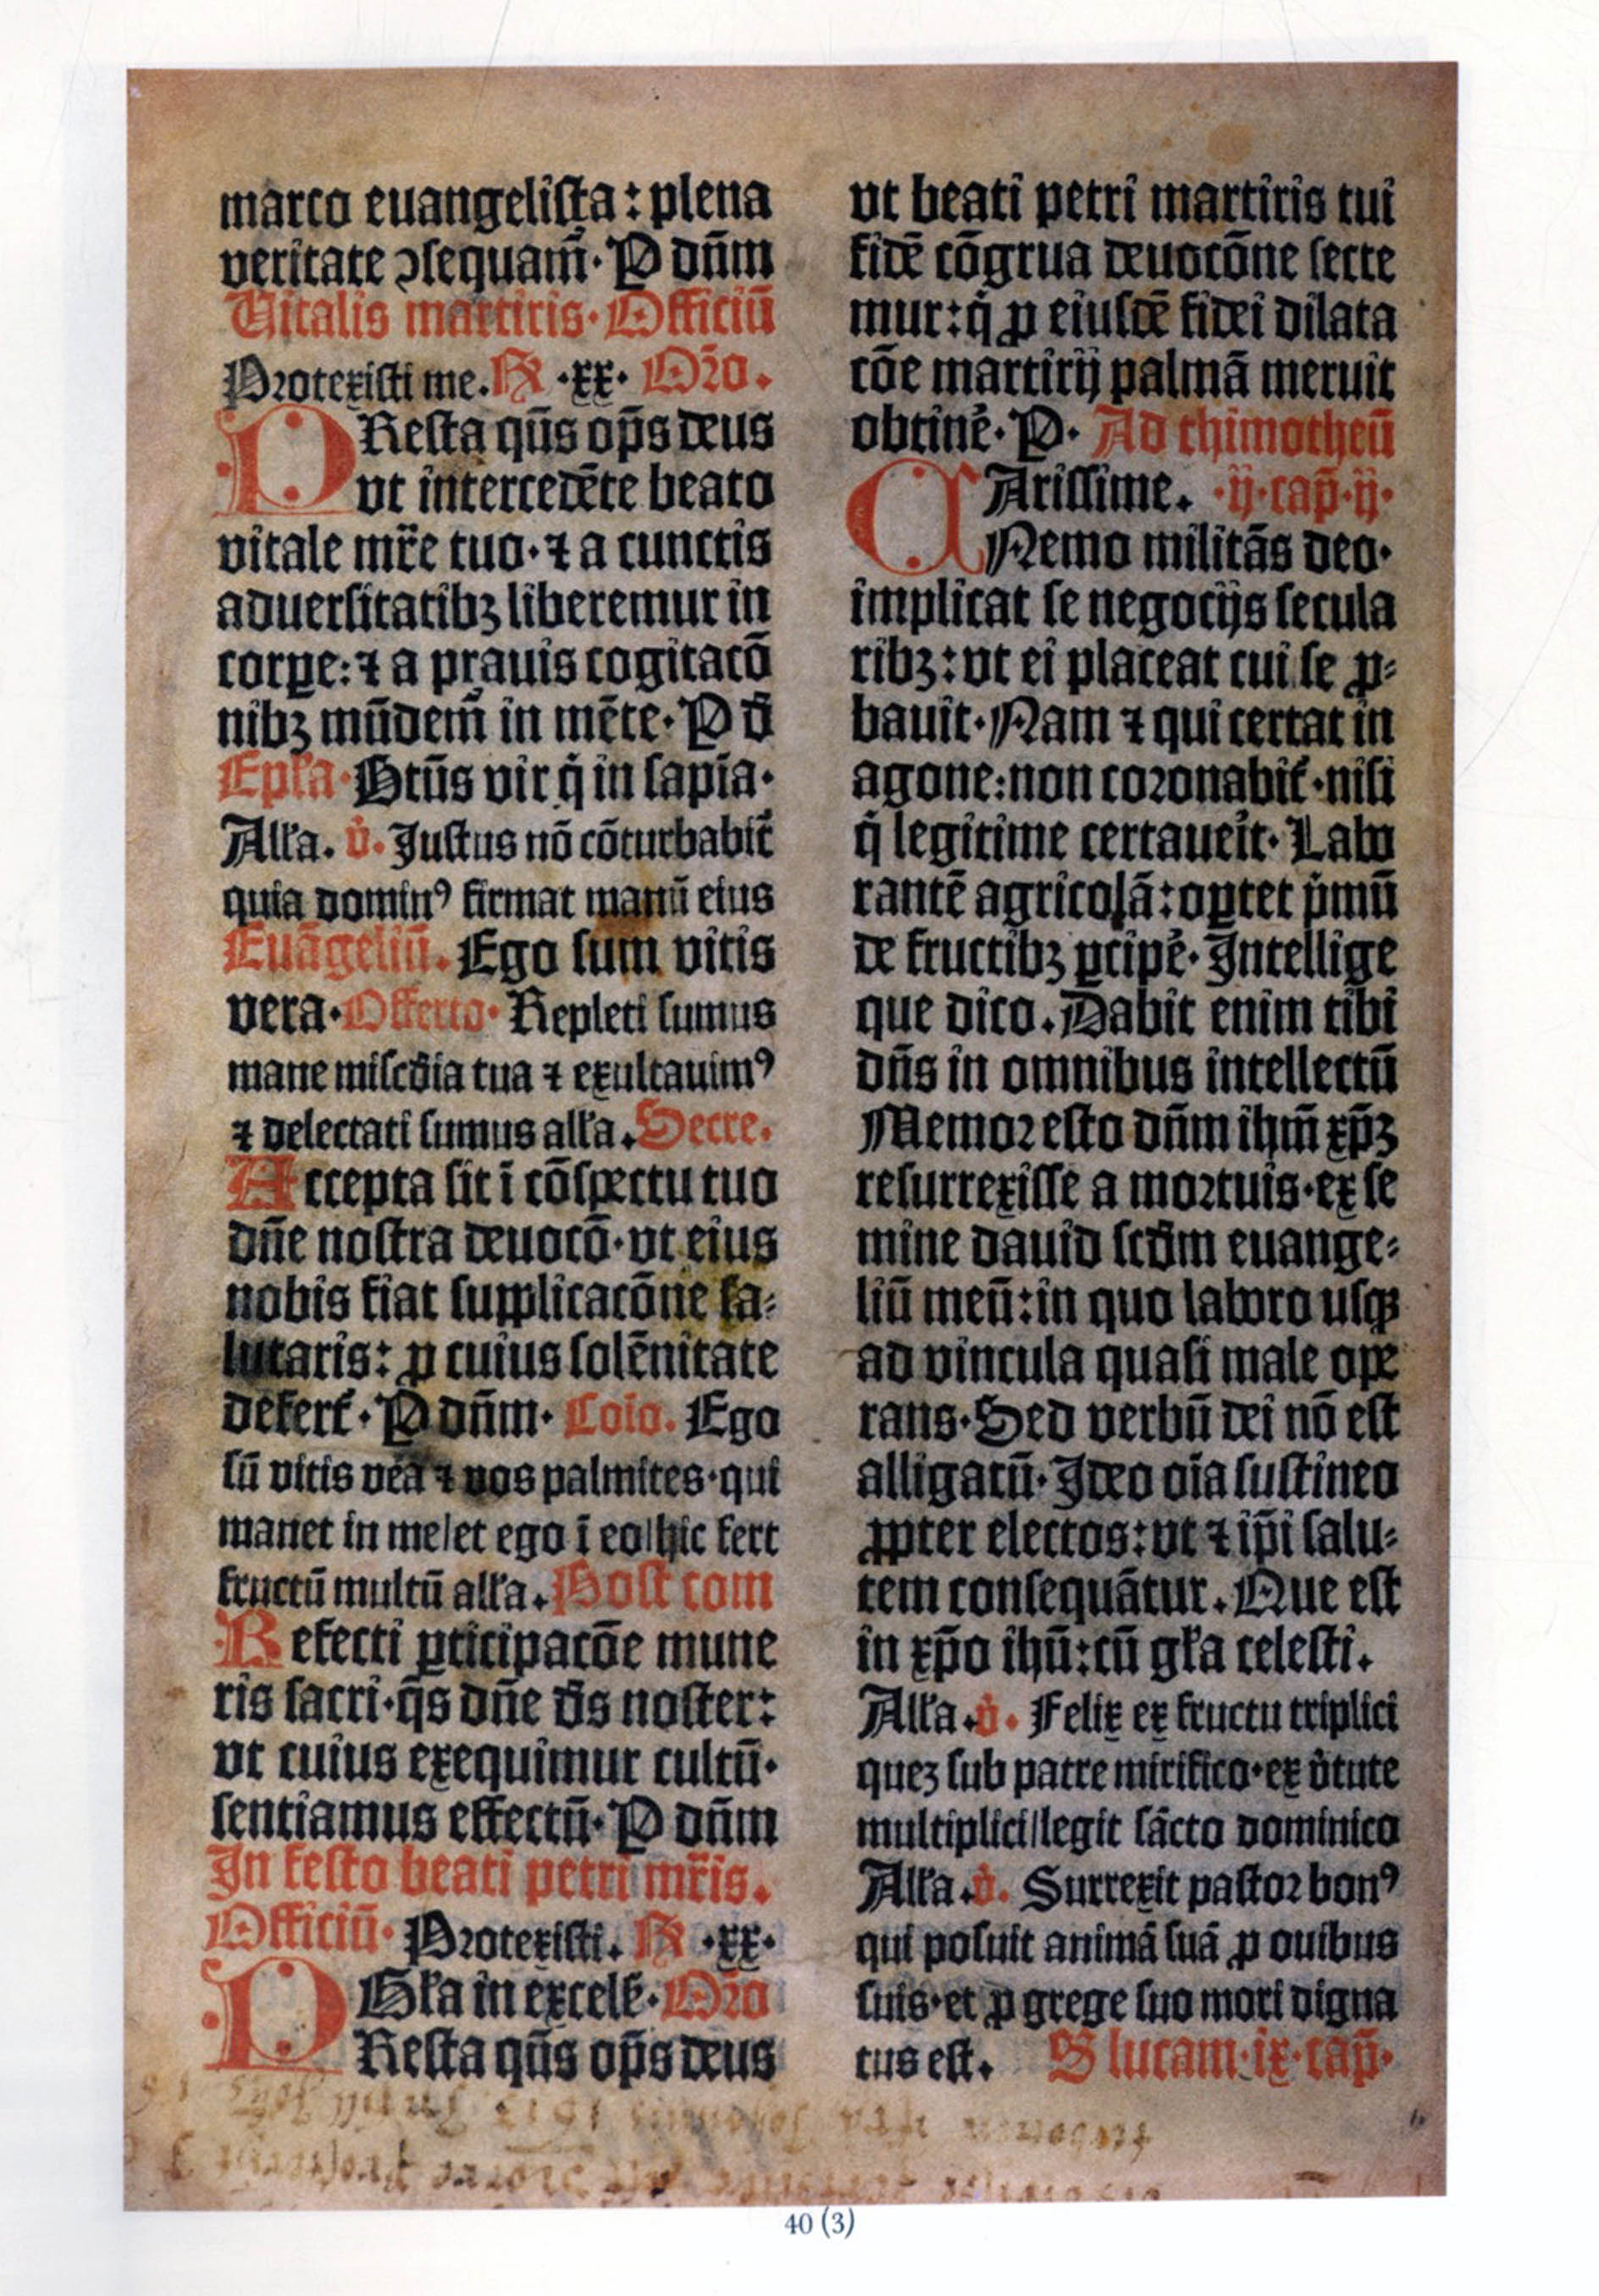 marco euangeliſta : plena
veritate ↄſequam̄· P dn̄m
Vitalis martiris· Officiū
Protexiſti me. R ·xx· Or̄o.
PReſta qūs op̄s deus
vt intercedēte beato
vitale mr̄e tuo· ⁊ a cunctis
aduerſitatibꝫ liberemur in
corꝑe: ⁊ a prauis cogitacō
nibꝫ mūdem̄ in mēte· P d̄
Ep̄ła· Btūs vir q̇ in ſapīa·
Ałła. v̇. Juſtus nō cōturbabit᷑
quia dominꝰ firmat manū eius
Euāgeliū. Ego ſum vitis
vera· Offerto· Repleti ſumus
mane miſcd̄ia tua ⁊ exultauimꝰ
⁊ delectati ſumus ałła. Secre.
Accepta ſit ī cōſpectu tuo
dn̄e noſtra deuocō· vt eius
nobis fiat ſupplicacōne ſa⸗
lutaris: ꝓ cuius ſolēnitate
defert᷑· P dn̄m· Coīo. Ego
ſū vitis ve̓a ⁊ vos palmites· qui
manet in me/et ego ī eo/hic fert
fructū multū ałła. Poſt com
Refecti ꝑticipacōe mune
ris ſacri· q̄s dn̄e d̄s noſter:
vt cuius exequimur cultū·
ſentiamus effectū· P dn̄m
In feſto beati petri mr̄is.
Officiū· Protexiſti. R ·xx·
Gła in excelſ᷑· Or̄o
PReſta qūs op̄s deus
vt beati petri martiris tui
fidē cōgrua deuocōne ſecte
mur: q̇ ꝓ eiuſdē fidei dilata
cōe martirij palmā meruit
obtine᷑· P· Ad thimotheū
CAriſſime. ·ij·cap̄·ij·
Nemo militās deo·
implicat ſe negocijs ſecula
ribꝫ: vt ei placeat cui ſe ꝓ⸗
bauit· Nam ⁊ qui certat in
agone: non coꝛonabit᷑· niſi
q̇ legitime certaue̓it· Labo
rantē agricolā: oꝑtet p̓mū
de fructibꝫ ꝑcipe̓· Intellige
que dico. Dabit enim tibi
dn̄s in omnibus intellectū
Memoꝛ eſto dn̄m ihm̄ xp̄ꝫ
reſurrexiſſe a moꝛtuis· ex ſe
mine dauid ſcd̄m euange⸗
liū meū: in quo laboro uſqꝫ
ad vincula quaſi male oꝑe
rans· Sed verbū dei nō eſt
alligatū· Ideo oīa ſuſtineo
ꝓpter electos: vt ⁊ ip̄i ſalu⸗
tem conſequātur. Que eſt
in xp̄o ihū: cū gła celeſti.
Ałła. v̇. Felix ex fructu triplici
queꝫ ſub patre mirifico· ex v̓tute
multiplici/legit ſācto dominico
Ałła. v̇. Surrexit paſtoꝛ bonꝰ
qui poſuit animā ſuā ꝓ ouibus
ſuis· et ꝓ grege ſuo mori digna
tus eſt. S lucam· ix· cap̄·
40 (3)